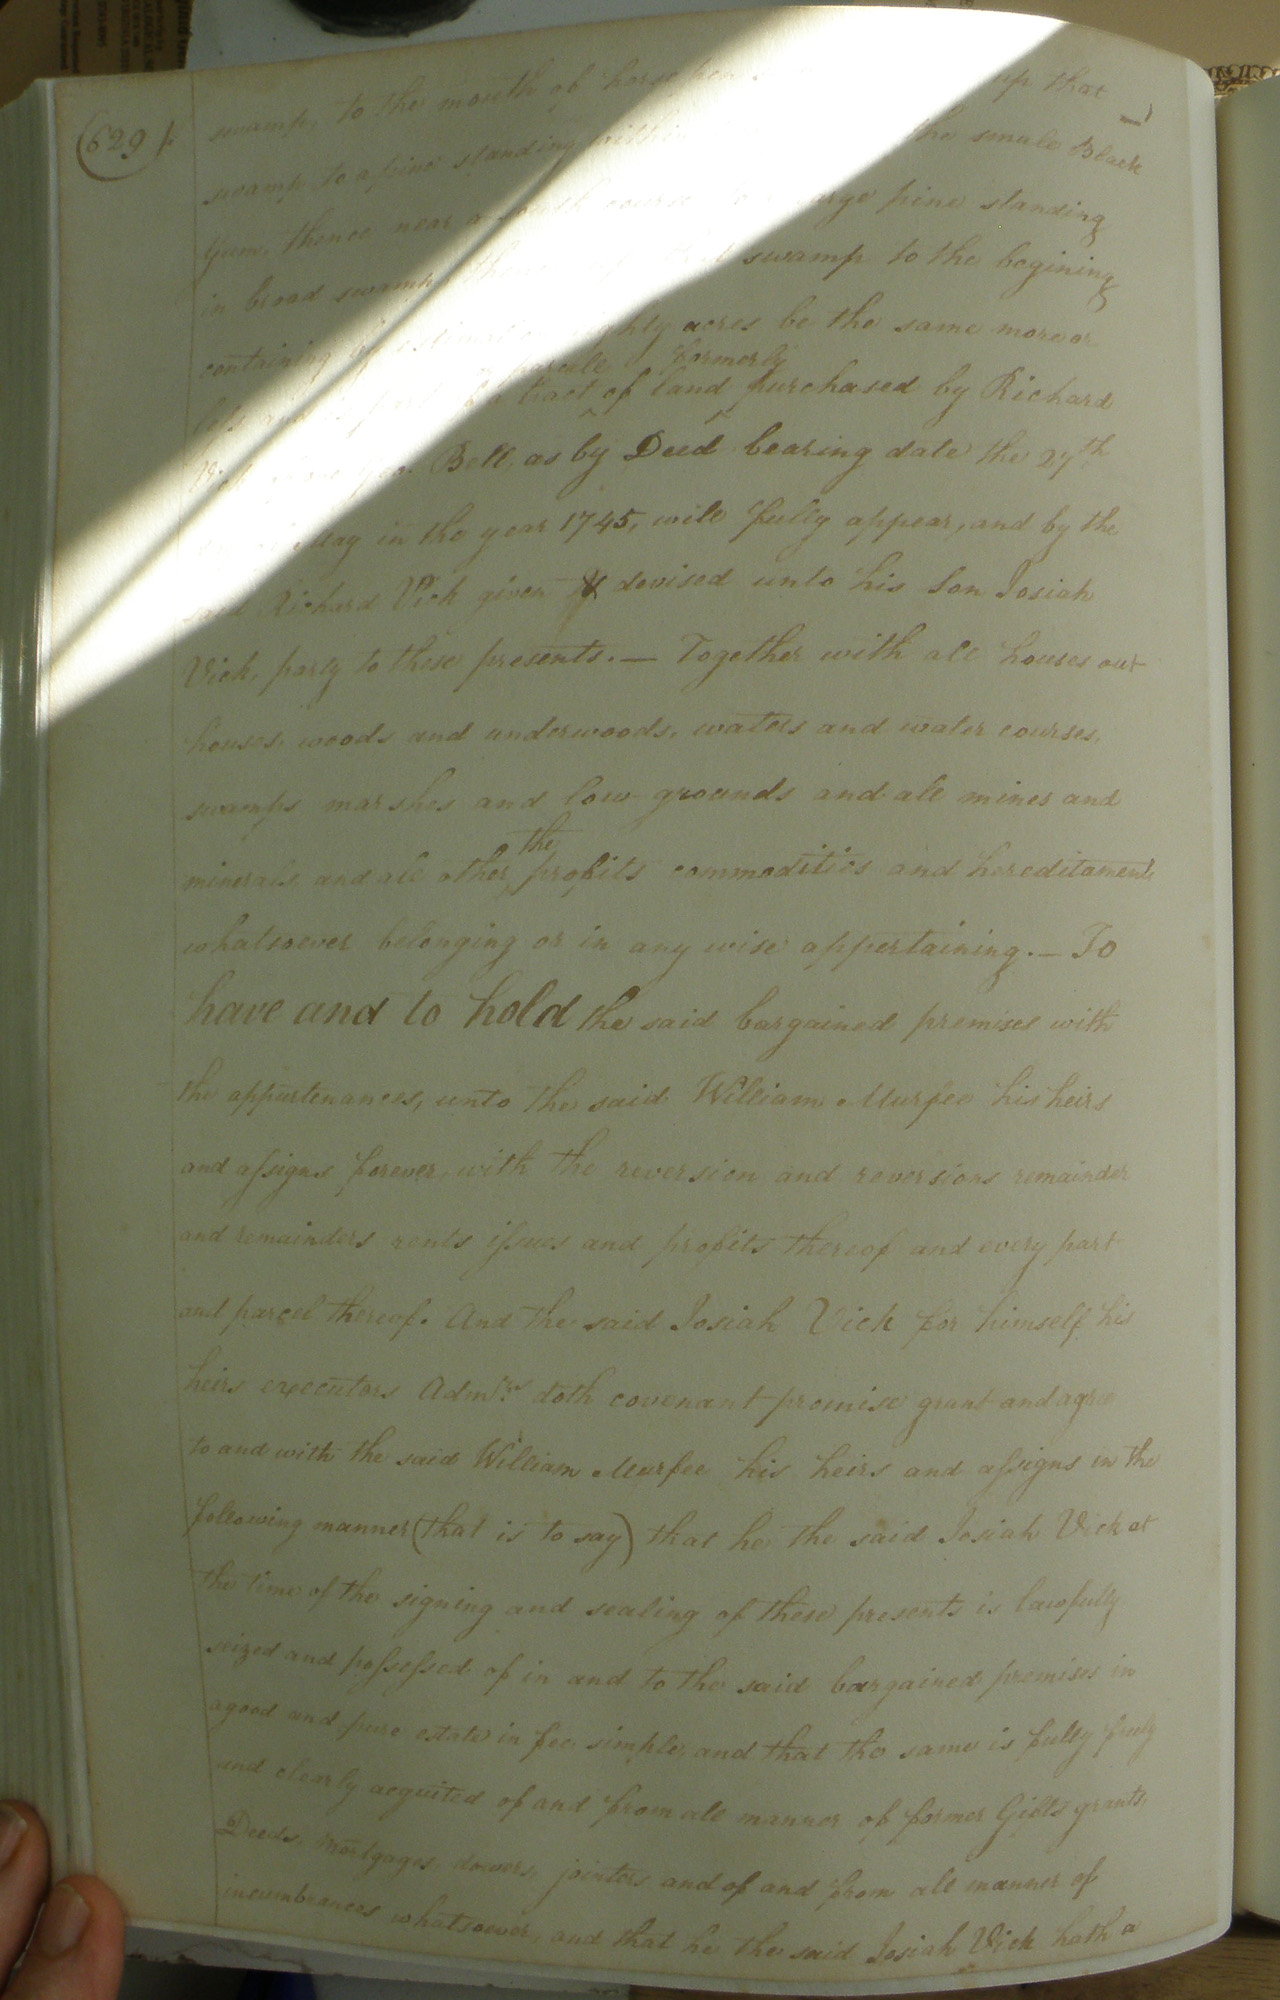 (629).
swamp, to the mouth of horse pen up that
swamp to a pine standing the smale Black
Gum, thence near a south course to a large pine standing
in broad swamp, thence swamp to the begining
containing by estimation eighty acres be the same more or
parcele formerly
less and is part of a tract of land purchased by Richard
Bell, as by Deed bearing date the 27th
May in the year 1745, will fully appear, and by the
said Richard Vick given & devised unto his Son Josiah
Vick, party to these presents. — Together with all houses out
houses, woods and underwoods, waters and water courses,
swamps marshes and low grounds and all mines and
the
minerals, and all other profits commodities and hereditaments
whatsoever belonging or in any wise appertaining. — To
have and to hold the said bargained premises with
the appurtenances, unto the said William Murfee his heirs
and assigns forever, with the reversion and reversions remainder
and remainders rents issues and profits thereof and every part
and parcel thereof. And the said Josiah Vick for himself his
heirs executors Admrs. doth covenant promise grant and agree
to and with the said William Murfee his heirs and assigns in the
following manner (that is to say) that he the said Josiah Vick at
the time of the signing and sealing of these presents is lawfully
seized and possessed of in and to the said bargained premises in
a good and pure estate in fee simple, and that the same is fully freely
and clearly acquited of and from all manner of former Gifts grants,
Deeds, mortgages, dowers, jointers and of and from all manner of
incumbrances whatsoever, and that he the said Josiah Vick hath a